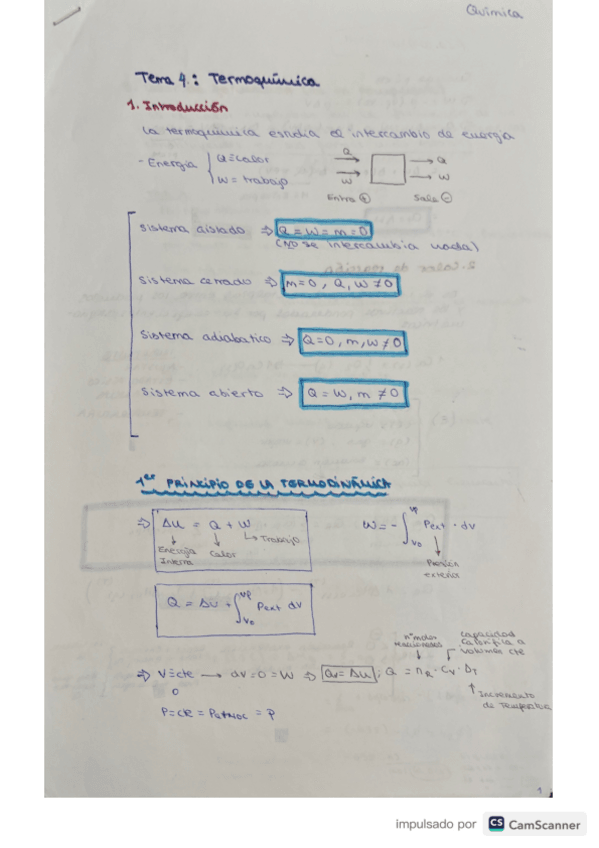 Química
Tema 4.: Termoquímica
1. Introducción
La termoquímica estudia el intercambio de energía
- Energía { Q = calor
W = trabajo
Q → □ → Q
W → □ → W
Entra ⊕ Sale ⊖
Sistema aislado ⇒ Q = W = m = 0
(NO se intercambia nada)
Sistema cerrado ⇒ m=0, Q, W ≠ 0
Sistema adiabatico ⇒ Q=0, m, W ≠ 0
Sistema abierto ⇒ Q = W, m ≠ 0
1er PRINCIPIO DE LA TERMODINÁMICA
⇒ ΔU = Q + W
Energía Interna
Calor
Trabajo
W = - ∫ Pext · dv
Vo
Presión exterior
Q = ΔU + ∫ Pext dv
Vo
⇒ V=cte → dv=0=W ⇒ Qv=ΔU ; Q = nR · Cv · ΔT
nº moles reaccionantes
capacidad calorífica a volumen cte
Incremento de Temperatura
O
1
impulsado por CS CamScanner